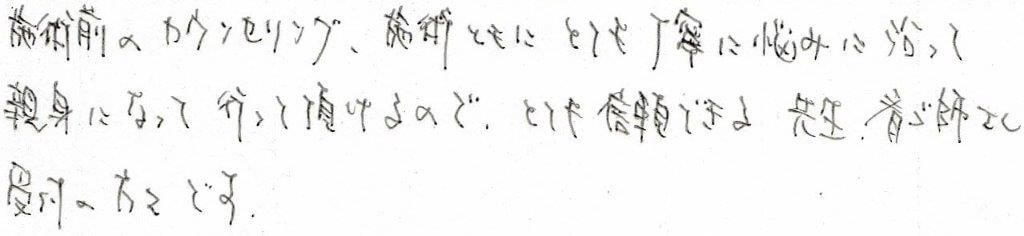 施術前のカウンセリング、施術ともにとても丁寧に悩みに沿って
親身になって行って頂けるので、とても信頼できる先生、看ご師さん
受付の方々です.